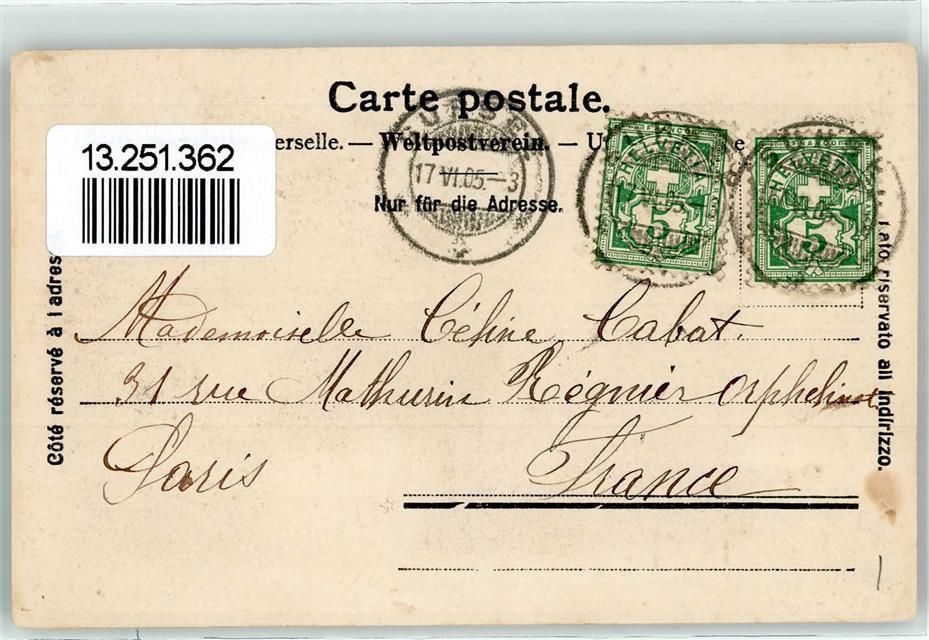 Carte postale.
erselle. — Weltpostverein. — U
13.251.362
17 VI.05.—3
Nur für die Adresse.
HELVETIA
5
HELVETIA
5
Côté réservé à l adres
Lato riservato all indirizzo.
Mademoiselle Céline Cabat.
31 rue Mathurin Régnier Orphelinat
Paris France